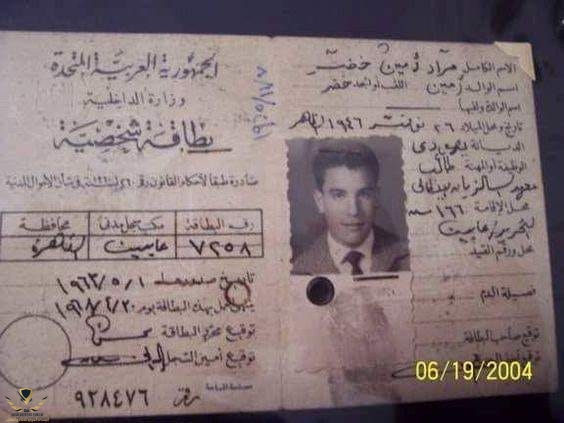 الجمهورية العربية المتحدة
وزارة الداخلية
بطاقة شخصية
صادرة طبقا لأحكام القانون رقم ٢٦٠ لسنة ١٩٦٠ في شأن الأحوال المدنية
رقم البطاقة
مكتب سجل مدني
محافظة
٧٢٥٨
عابدين
القاهرة
تاريخ صدورها ١٩٦٣/٥/١
توقيع محرر البطاقة
توقيع أمين السجل المدني
٩٢٨٤٧٦
الاسم الكامل مراد رمين خضر
اسم الوالد رمين اللقب أو الجد خضر
اسم الوالدة ولقبها
تاريخ ومحل الميلاد ٢٦ نوفمبر ١٩٤٦ القاهرة
الديانة يهودي
الوظيفة أو المهنة طالب
محل الإقامة ١٦٦ ش
التحرير عابدين
محل ورقم القيد
فصيلة الدم
توقيع صاحب البطاقة
06/19/2004